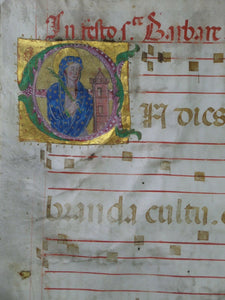 In festo s. Barbare
A dies
branda cultu.